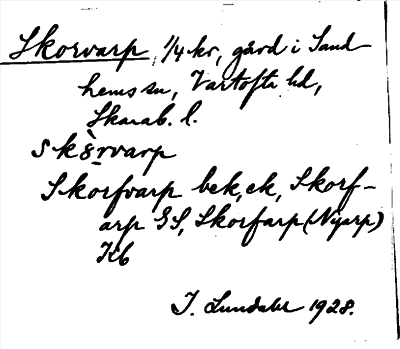 Skorvarp, 1/4 kr, gård i Sand-
hems sn, Vartofta hd,
Skarab. l.
Skorfvarp bek, ek, Skorf-
arp GS, Skorfarp (Nyarp)
Kb
I. Lundahl 1928.